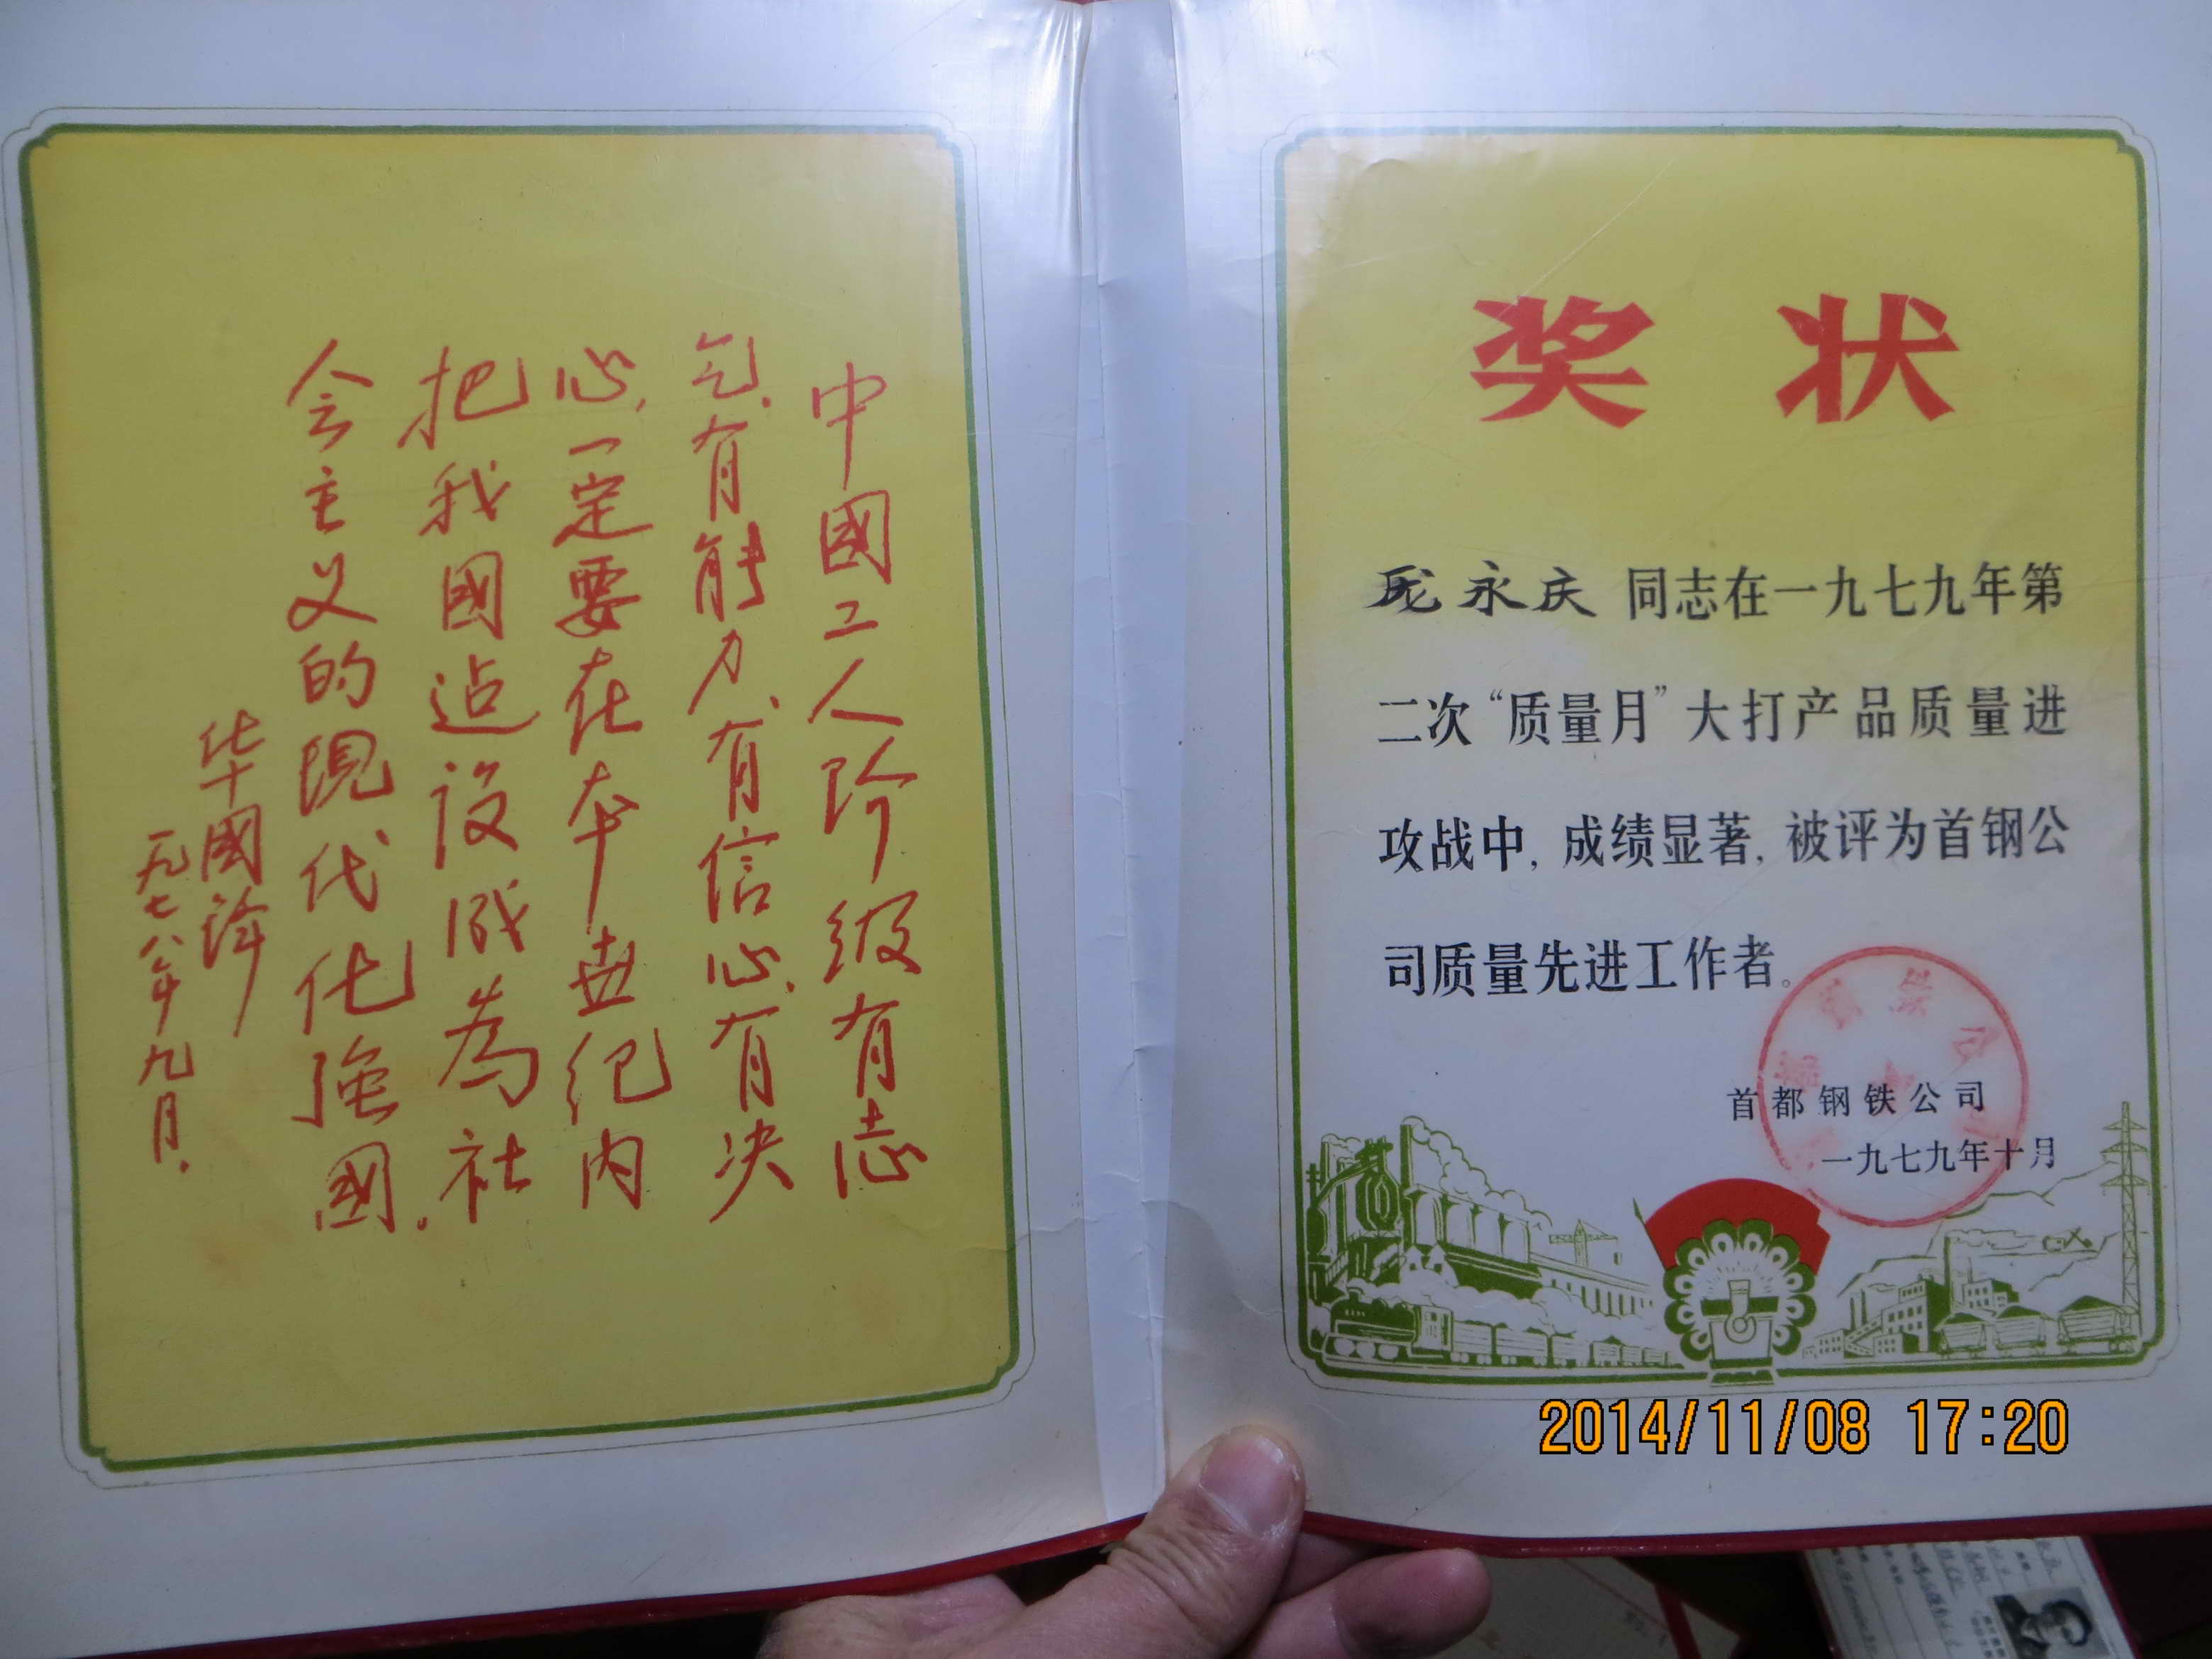 中國工人阶级有志
气、有能力、有信心、有决
心,一定要在本世纪内
把我國建设成為社
会主义的现代化强國.
华國锋
一九七八年九月.
奖 状
庞永庆 同志在一九七九年第
二次“质量月”大打产品质量进
攻战中, 成绩显著, 被评为首钢公
司质量先进工作者。
首都钢铁公司
一九七九年十月
2014/11/08 17:20